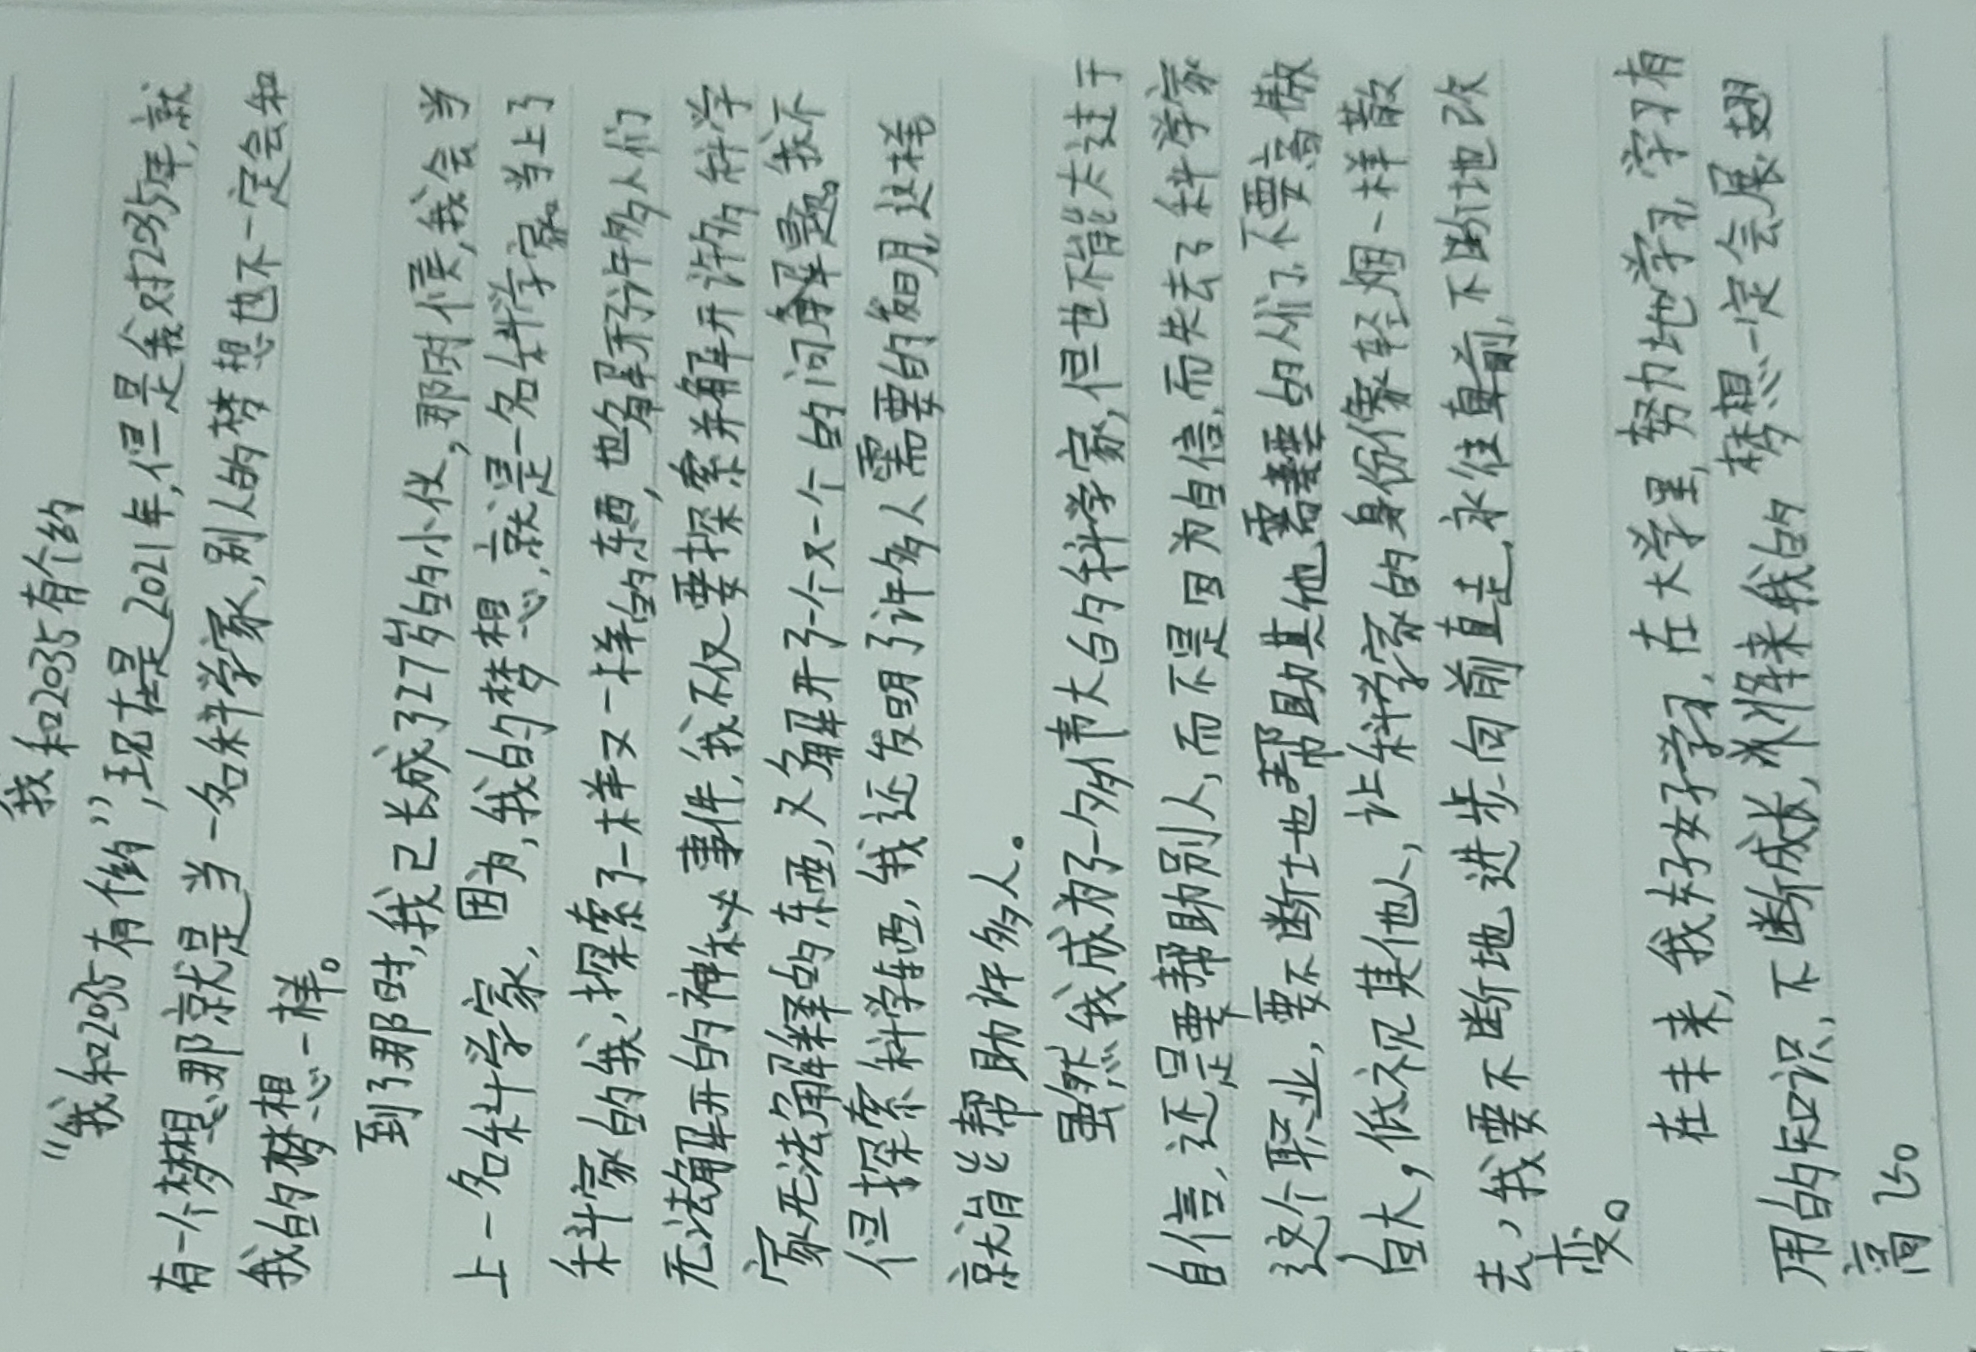 我和2035有个约
“我和2035有个约”，现在是2021年，但是我对2035年，就
有一个梦想，那就是当一名科学家，别人的梦想也不一定会和
我的梦想一样。
到了那时，我已长成了27岁的小伙，那时候，我会当
上一名科学家，因为，我的梦想，就是一名科学家。当上了
科学家的我，探索了一样又一样的东西，也解开了许多人们
无法解开的神秘事件，我不仅要探索并解开许多科学
家无法解释的东西，又解开了一个又一个的问题。我不
但探索科学东西，我还发明了许多人需要的发明，这样
就能帮助许多人。
虽然我成为了一多伟大的科学家，但也不能太过于
自信，还是要帮助别人，而不是因为自信，而失去了科学家
这个职业，要不断士也帮助其他需要的人们，不要高傲
自大，低视其他人，让科学家的身份像轻烟一样散
去，我要不断地进步，向前直走，永往直前，不断地改
变。
在未来，我好好学习，在大学里，努力地学习，学习有
用的知识，不断成长，将来我的梦想一定会展翅
高飞。